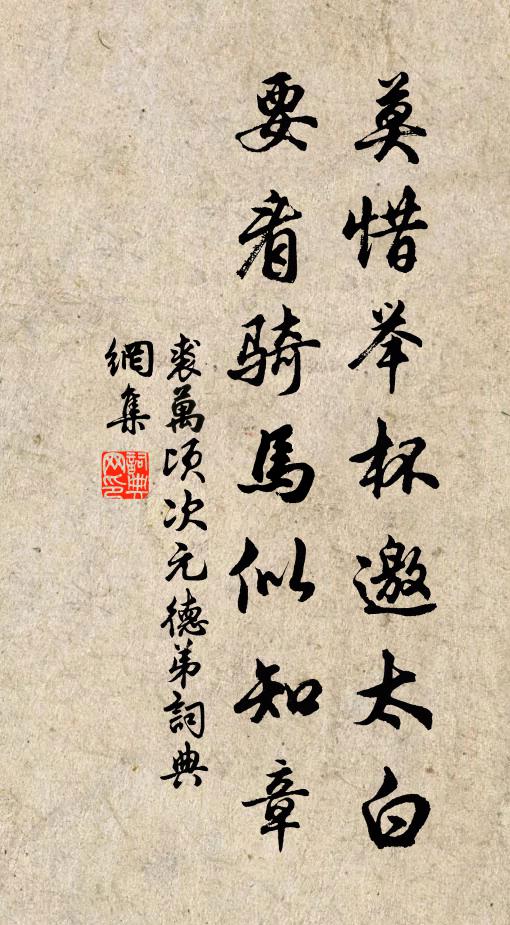 莫惜举杯邀太白
要看骑馬似知章
裘萬頃次元德弟詞典
網集
詞典
网印